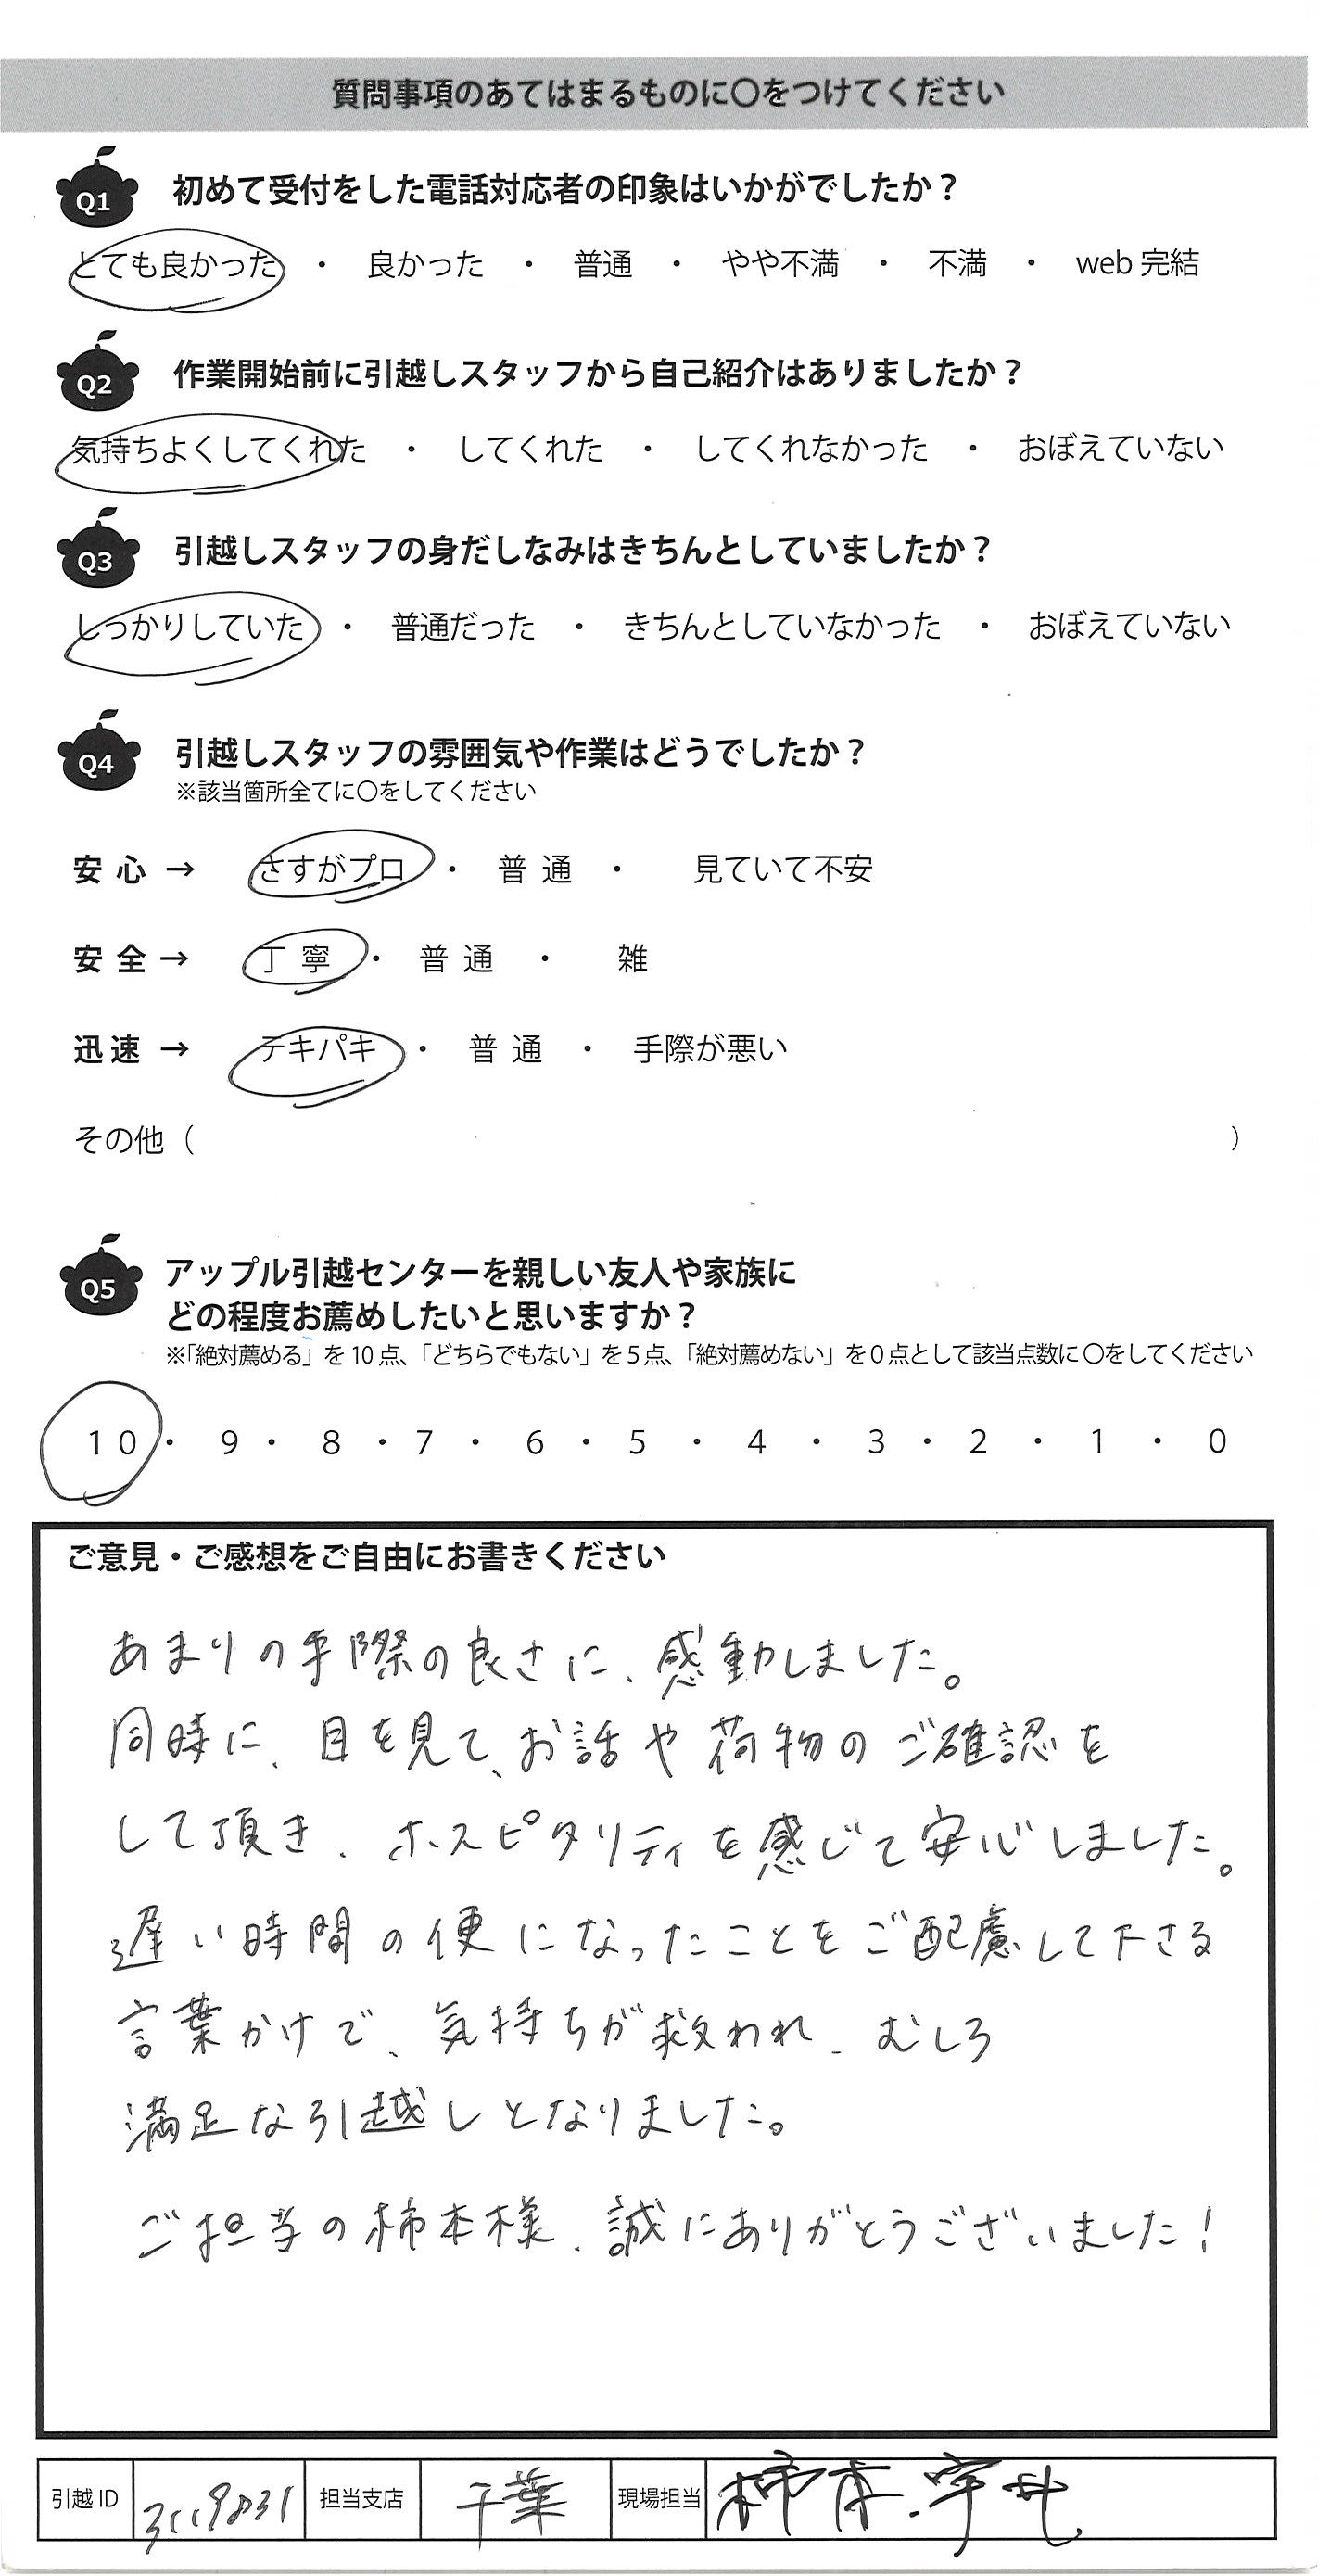 質問事項のあてはまるものに〇をつけてください
Q1 初めて受付をした電話対応者の印象はいかがでしたか？
とても良かった ・ 良かった ・ 普通 ・ やや不満 ・ 不満 ・ web 完結
Q2 作業開始前に引越しスタッフから自己紹介はありましたか？
気持ちよくしてくれた ・ してくれた ・ してくれなかった ・ おぼえていない
Q3 引越しスタッフの身だしなみはきちんとしていましたか？
しっかりしていた ・ 普通だった ・ きちんとしていなかった ・ おぼえていない
Q4 引越しスタッフの雰囲気や作業はどうでしたか？
※該当箇所全てに〇をしてください
安心 → さすがプロ ・ 普通 ・ 見ていて不安
安全 → 丁寧 ・ 普通 ・ 雑
迅速 → テキパキ ・ 普通 ・ 手際が悪い
その他（ ）
Q5 アップル引越センターを親しい友人や家族に
どの程度お薦めしたいと思いますか？
※「絶対薦める」を 10 点、「どちらでもない」を 5 点、「絶対薦めない」を 0 点として該当点数に 〇をしてください
10 ・ 9 ・ 8 ・ 7 ・ 6 ・ 5 ・ 4 ・ 3 ・ 2 ・ 1 ・ 0
ご意見・ご感想をご自由にお書きください
あまりの手際の良さに、感動しました。
同時に、目を見て、お話や荷物のご確認を
して頂き、ホスピタリティを感じて安心しました。
遅い時間の便になったことをご配慮して下さる
言葉かけで、気持ちが救われ、むしろ
満足な引越しとなりました。
ご担当の柿本様、誠にありがとうございました！
引越 ID 3119831 担当支店 千葉 現場担当 柿本.宇